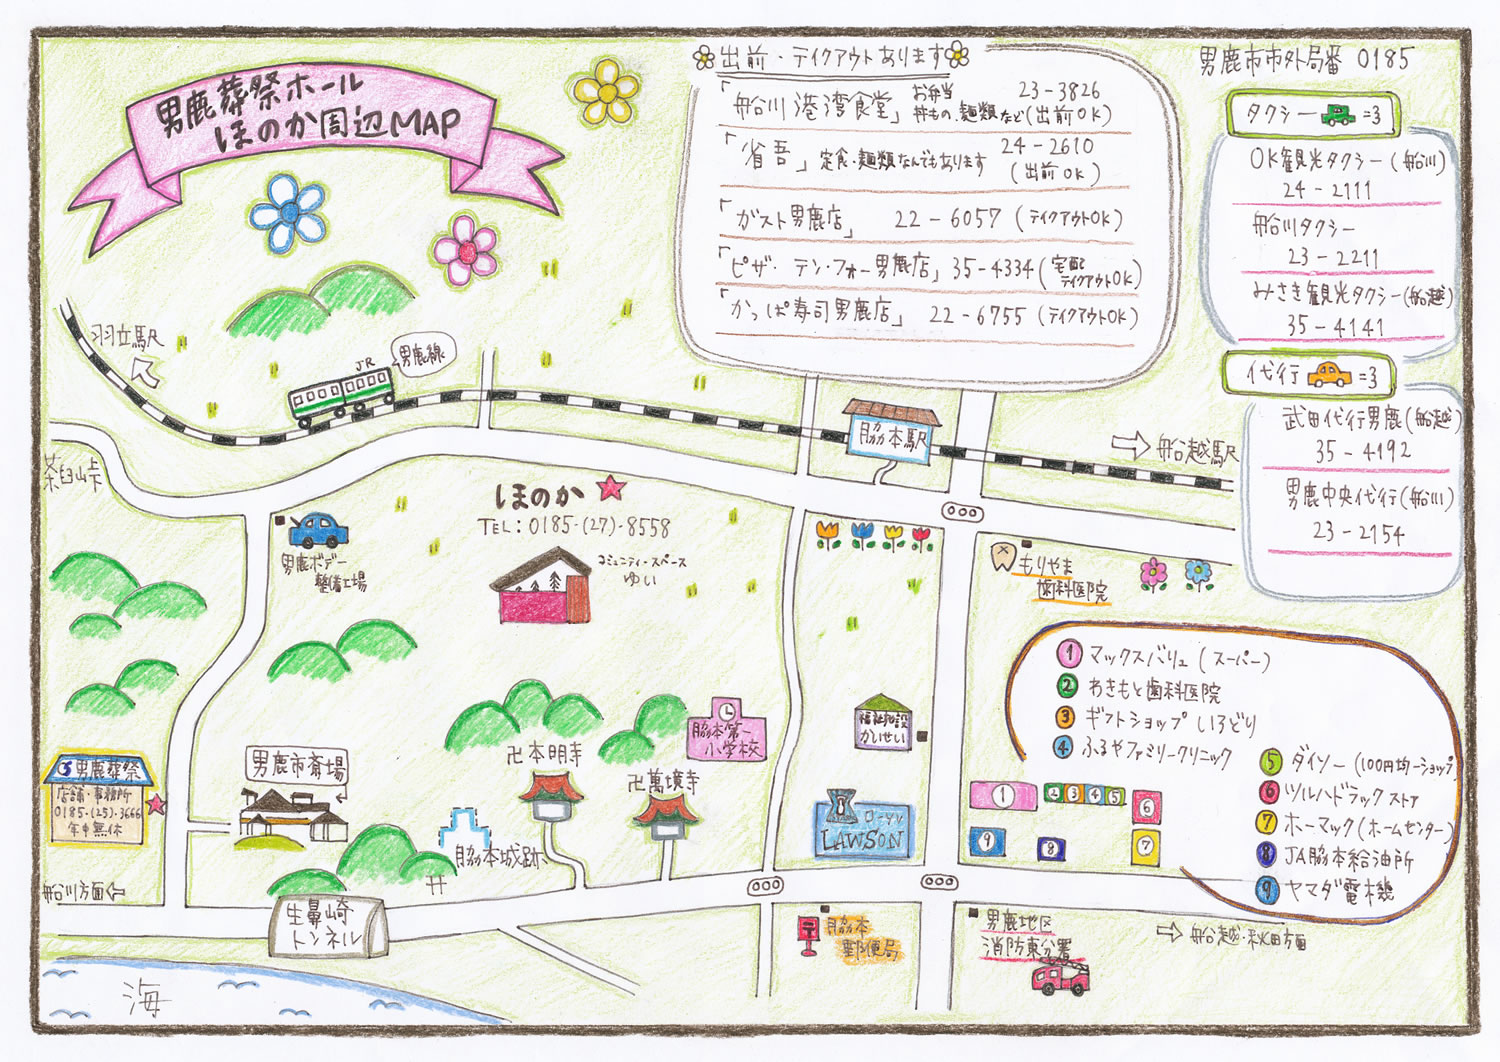 男鹿葬祭ホール
ほのか周辺MAP
出前・テイクアウトあります
「船川港湾食堂」 お弁当 23-3826
丼もの、麺類など(出前OK)
「省吾」 定食・麺類なんでもあります 24-2610
(出前OK)
「ガスト男鹿店」 22-6057 (テイクアウトOK)
「ピザ・テン・フォー男鹿店」 35-4334 (宅配
テイクアウトOK)
「かっぱ寿司男鹿店」 22-6755 (テイクアウトOK)
男鹿市市外局番 0185
タクシー =3
OK観光タクシー(船川)
24-2111
船川タクシー
23-2211
みさき観光タクシー(船越)
35-4141
代行 =3
武田代行男鹿(船越)
35-4192
男鹿中央代行(船川)
23-2154
羽立駅
JR
男鹿線
脇本駅
船越駅
茶臼峠
ほのか
TEL:0185-(27)-8558
コミュニティースペース
ゆい
男鹿ボデー
整備工場
もりやま
歯科医院
① マックスバリュ(スーパー)
② わきもと歯科医院
③ ギフトショップ いろどり
④ ふるやファミリークリニック
⑤ ダイソー(100円均一ショップ)
⑥ ツルハドラックストア
⑦ ホーマック(ホームセンター)
⑧ JA脇本給油所
⑨ ヤマダ電機
① ② ③ ④ ⑤ ⑥
⑨ ⑧ ⑦
脇本第一
小学校
福祉施設
かいせい
卍本明寺
卍萬境寺
男鹿市斎場
男鹿葬祭
店舗・事務所
0185-(25)-3666
年中無休
脇本城跡
ローソン
LAWSON
船川方面
生鼻崎
トンネル
脇本
郵便局
男鹿地区
消防東分署
船越・秋田方面
海